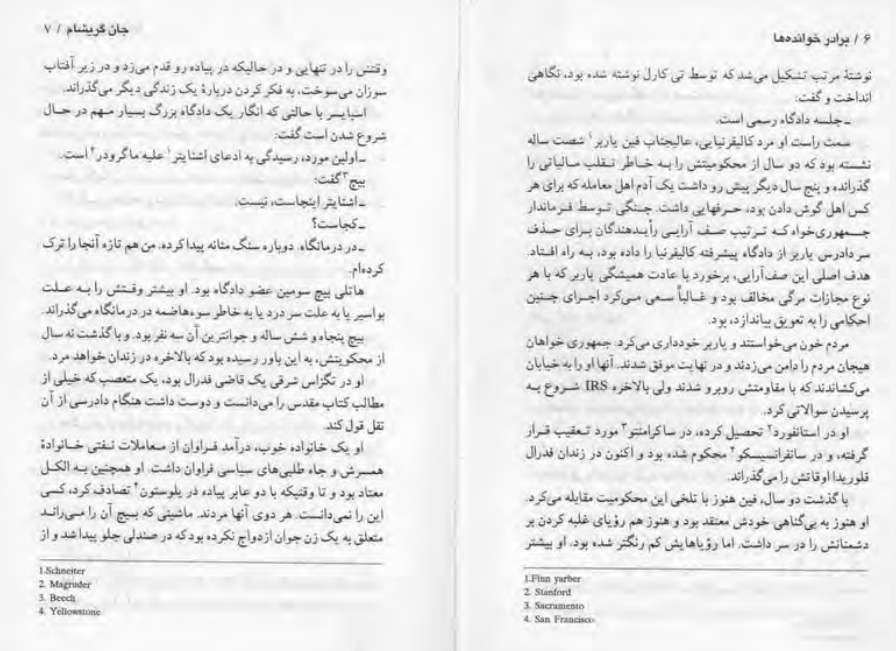 ۶ / برادر خوانده‌ها
نوشتهٔ مرتب تشکیل می‌شد که توسط تی کارل نوشته شده بود، نگاهی
انداخت و گفت:
ـ جلسه دادگاه رسمی است.
سمت راست او مرد کالیفرنیایی، عالیجناب فین یاربر۱ شصت ساله
نشسته بود که دو سال از محکومیتش را به خاطر تقلب مالیاتی را
گذرانده و پنج سال دیگر پیش رو داشت یک آدم اهل معامله که برای هر
کس اهل گوش دادن بود، حرفهایی داشت. جنگی توسط فرماندار
جمهوری‌خواه که ترتیب صف آرایی رأیدهندگان برای حذف
سر دادرس یاربر از دادگاه پیشرفته کالیفرنیا را داده بود، به راه افتاد.
هدف اصلی این صف‌آرایی، برخورد با عادت همیشگی یاربر که با هر
نوع مجازات مرگی مخالف بود و غالباً سعی می‌کرد اجرای چنین
احکامی را به تعویق بیاندازد، بود.
مردم خون می‌خواستند و یاربر خودداری می‌کرد. جمهوری خواهان
هیجان مردم را دامن می‌زدند و در نهایت موفق شدند. آنها او را به خیابان
می‌کشاندند که با مقاومتش روبرو شدند ولی بالاخره IRS شروع به
پرسیدن سوالاتی کرد.
او در استانفورد۲ تحصیل کرده، در ساکرامنتو۳ مورد تعقیب قرار
گرفته، و در سانفرانسیسکو۴ محکوم شده بود و اکنون در زندان فدرال
فلوریدا اوقاتش را می‌گذراند.
با گذشت دو سال، فین هنوز با تلخی این محکومیت مقابله می‌کرد.
او هنوز به بی‌گناهی خودش معتقد بود و هنوز هم رؤیای غلبه کردن بر
دشمنانش را در سر داشت. اما رؤیاهایش کم رنگتر شده بود. او بیشتر
1.Finn yarber
2. Stanford
3. Sacramento
4. San Francisco
جان گریشام / ۷
وقتش را در تنهایی و در حالیکه در پیاده رو قدم می‌زد و در زیر آفتاب
سوزان می‌سوخت، به فکر کردن دربارهٔ یک زندگی دیگر می‌گذراند.
اسپایسر با حالتی که انگار یک دادگاه بزرگ بسیار مهم در حال
شروع شدن است گفت:
ـ اولین مورد، رسیدگی به ادعای اشنایتر۱ علیه ماگرودر۲ است.
بیچ۳ گفت:
ـ اشنایتر اینجاست، نیست.
ـ کجاست؟
ـ در درمانگاه. دوباره سنگ مثانه پیدا کرده. من هم تازه آنجا را ترک
کرده‌ام.
هاتلی بیچ سومین عضو دادگاه بود. او بیشتر وقتش را به علت
بواسیر یا به علت سر درد یا به خاطر سوءهاضمه در درمانگاه می‌گذراند.
بیچ پنجاه و شش ساله و جوانترین آن سه نفر بود. و با گذشت نه سال
از محکومیتش، به این باور رسیده بود که بالاخره در زندان خواهد مرد.
او در تگزاس شرقی یک قاضی فدرال بود، یک متعصب که خیلی از
مطالب کتاب مقدس را می‌دانست و دوست داشت هنگام دادرسی از آن
نقل قول کند.
او یک خانواده خوب، درآمد فراوان از معاملات نفتی خانوادهٔ
همسرش و جاه طلبی‌های سیاسی فراوان داشت. او همچنین به الکل
معتاد بود و تا وقتیکه با دو عابر پیاده در یلوستون۴ تصادف کرد، کسی
این را نمی‌دانست. هر دوی آنها مردند. ماشینی که بیچ آن را می‌راند
متعلق به یک زن جوان ازدواج نکرده بود که در صندلی جلو پیدا شد و از
1.Schneiter
2. Magruder
3. Beech
4. Yellowstone